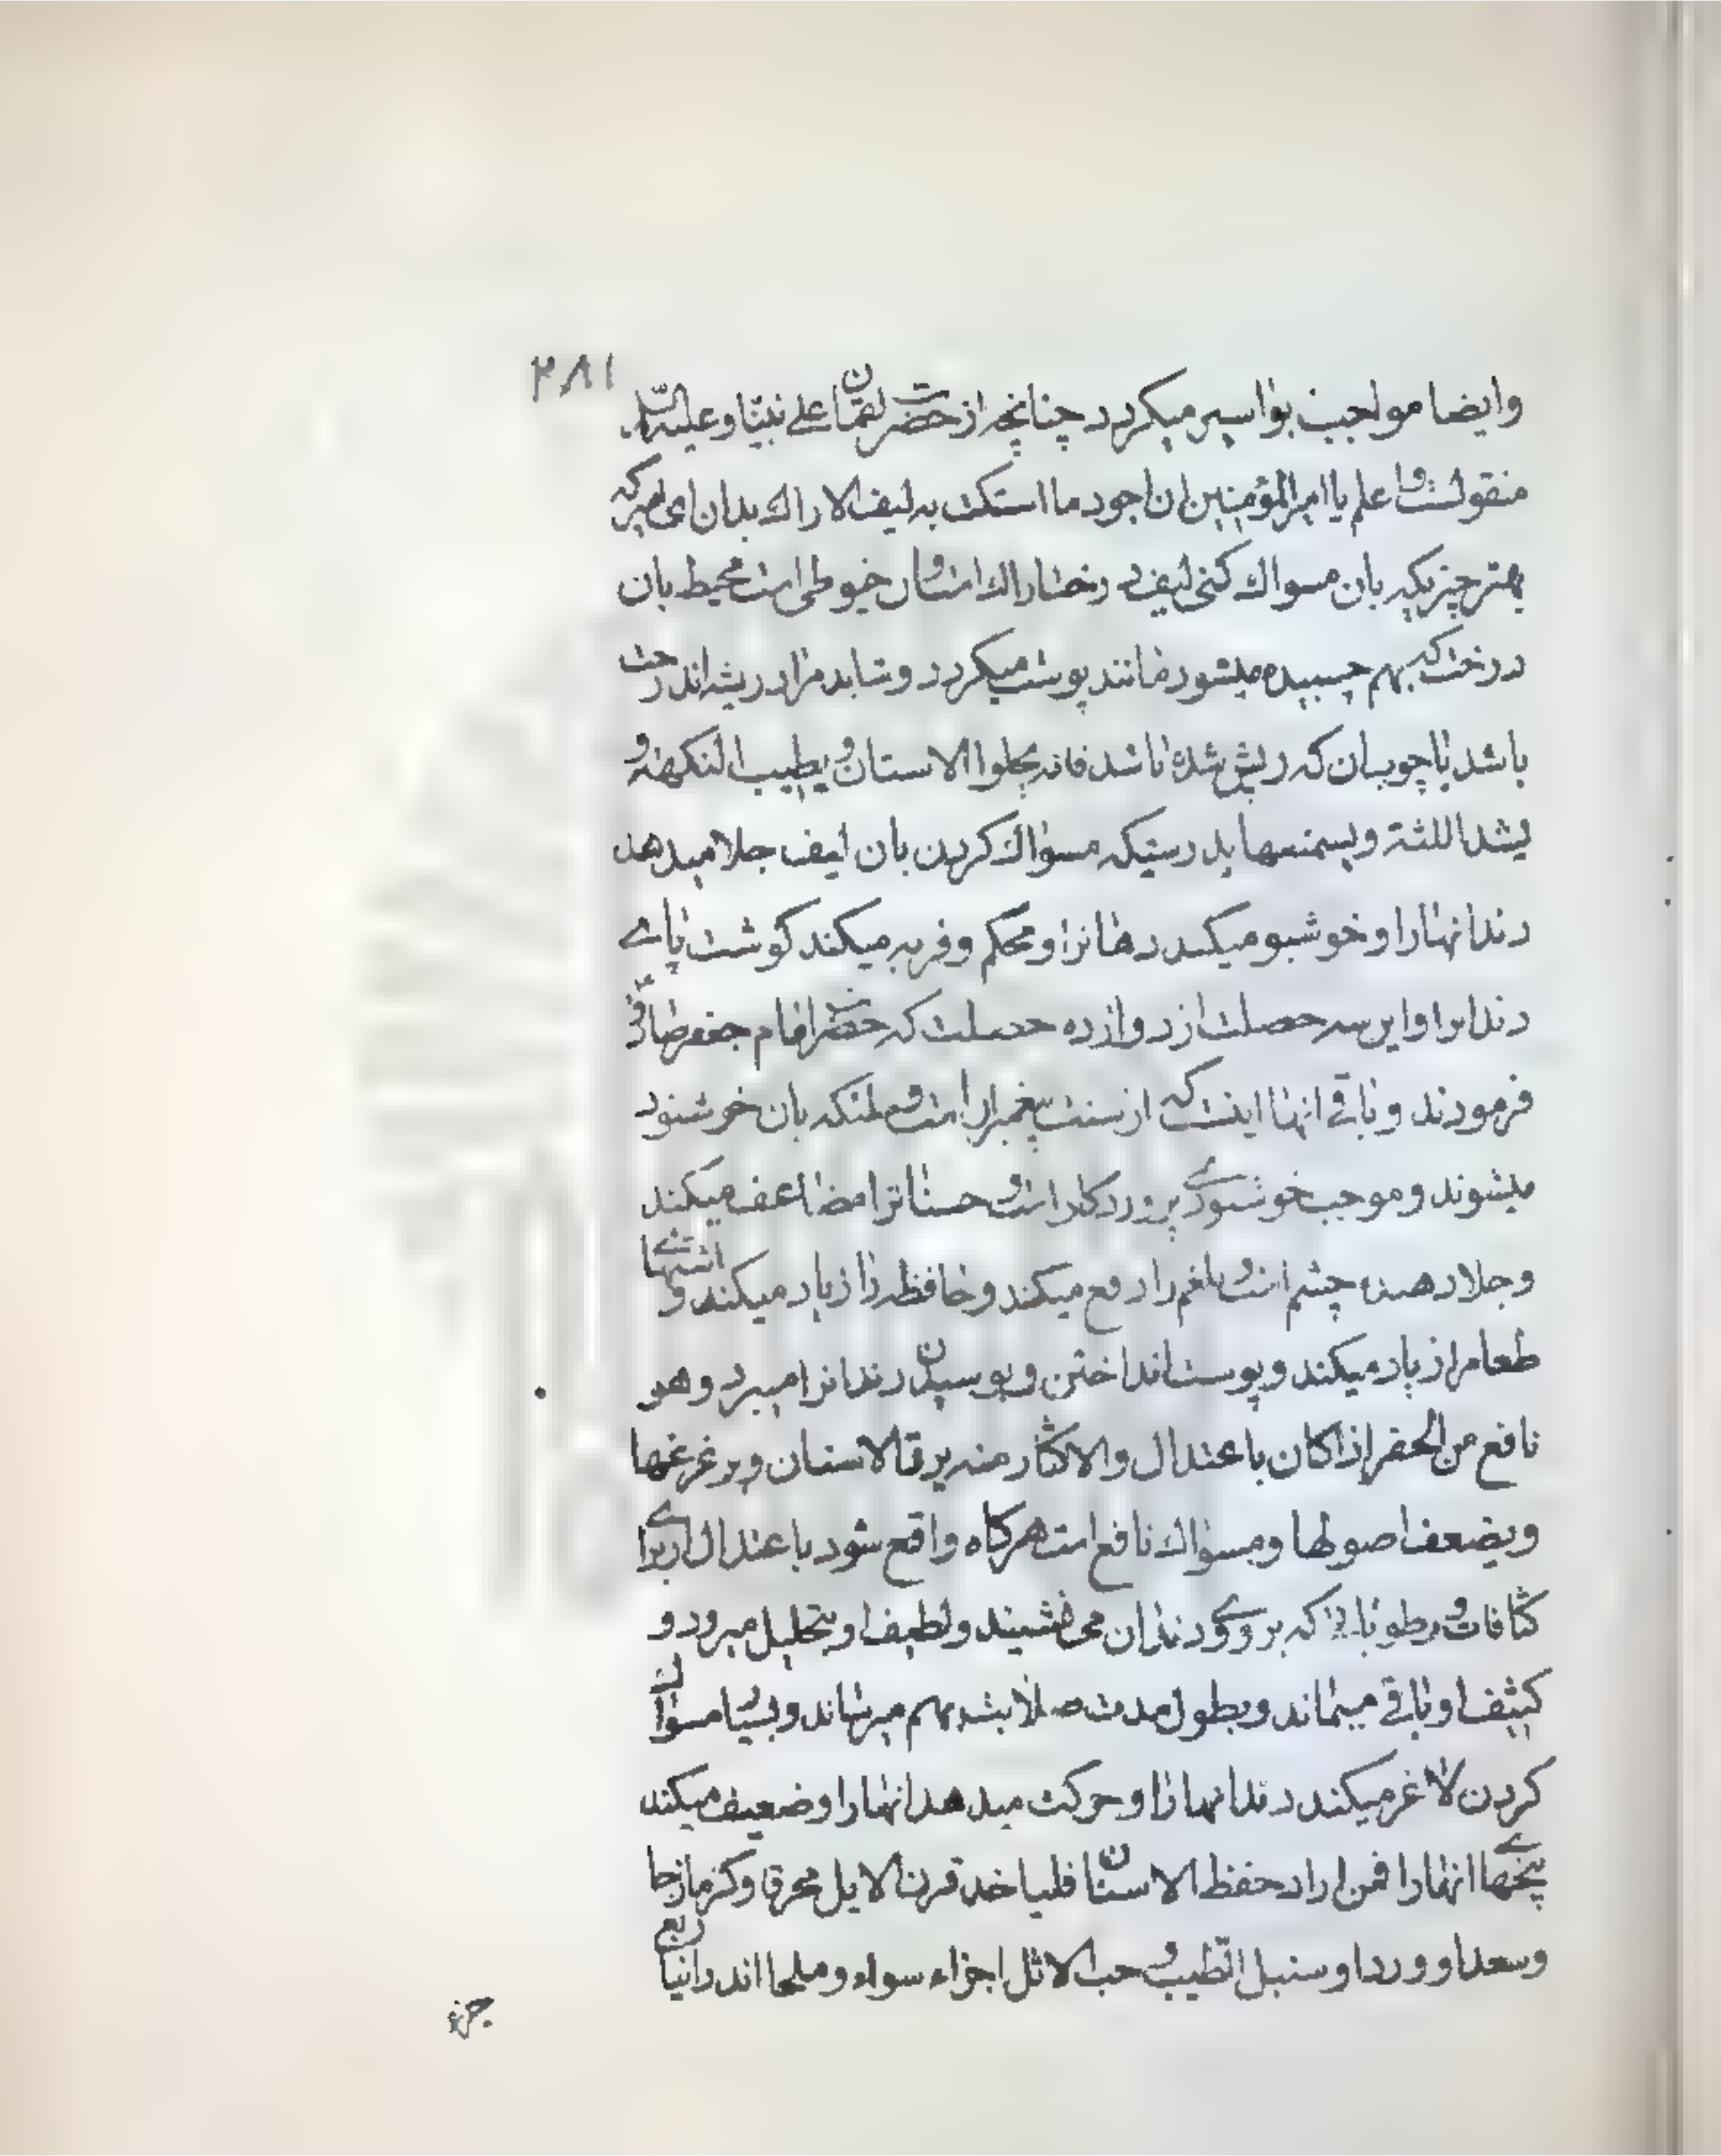 ۲۸۱
وایضا مواجب بواسیر میکردد چنانچه از حضرت لقمان علی نبینا و علیه السلام
منقولست و اعلم یا امیر المؤمنین ان اجود ما استکت به لیف الاراك بدان ای امیر که
بهتر چیزیکه بان مسواك کنی لیف درخت اراك است و ان خیوطی است محیط بان
درخت که بهم چسبیده میشود مانند پوست میکردد و شاید مراد ریشه اندرخت
باشد یا چوب ان که ریش شده باشد فانه یجلوا الاسنان و یطیب النکهة و
یشد اللثة و یسمنها بدرستیکه مسواك کردن بان لیف جلا میدهد
دندانهارا و خوشبو میکند دهانرا و محکم و فربه میکند کوشت پای
دندانرا و این سه خصلت از دوازده خصلت که حضرت امام جعفر صادق
فرمودند و باقی انها اینست که از سنت پیغمبران است و ملئکه بان خوشنود
میشوند و موجب خوشنودی پروردکار است و حسناترا مضاعف میکند
و جلا دهنده چشم است و بلغم را دفع میکند و حافظه را زیاد میکند و اشتهای
طعامرا زیاد میکند و پوست انداختن و پوسیدن دندانرا میبرد و هو
نافع من الحفر اذا کان باعتدال والاکثار منه یرق الاسنان و یزعزعها
ویضعف اصولها و مسواك نافع است هرکاه واقع شود باعتدال از برای
کثافات و رطوباتی که بر روی دندان می نشیند و لطیف او بتحلیل میرود و
کثیف او باقی میماند و بطول مدت صلابت بهم میرساند و بسیار مسواك
کردن لاغر میکند دندانهارا و حرکت میدهد انهارا و ضعیف میکند
بیخهای انهارا فمن اراد حفظ الاسنان فلیاخذ قرن الایل محرق و کزمازجا
وسعدا و وردا و سنبل الطیب و حب الاثل اجزاء سواء و ملحا اندرانیا ربع
جزء